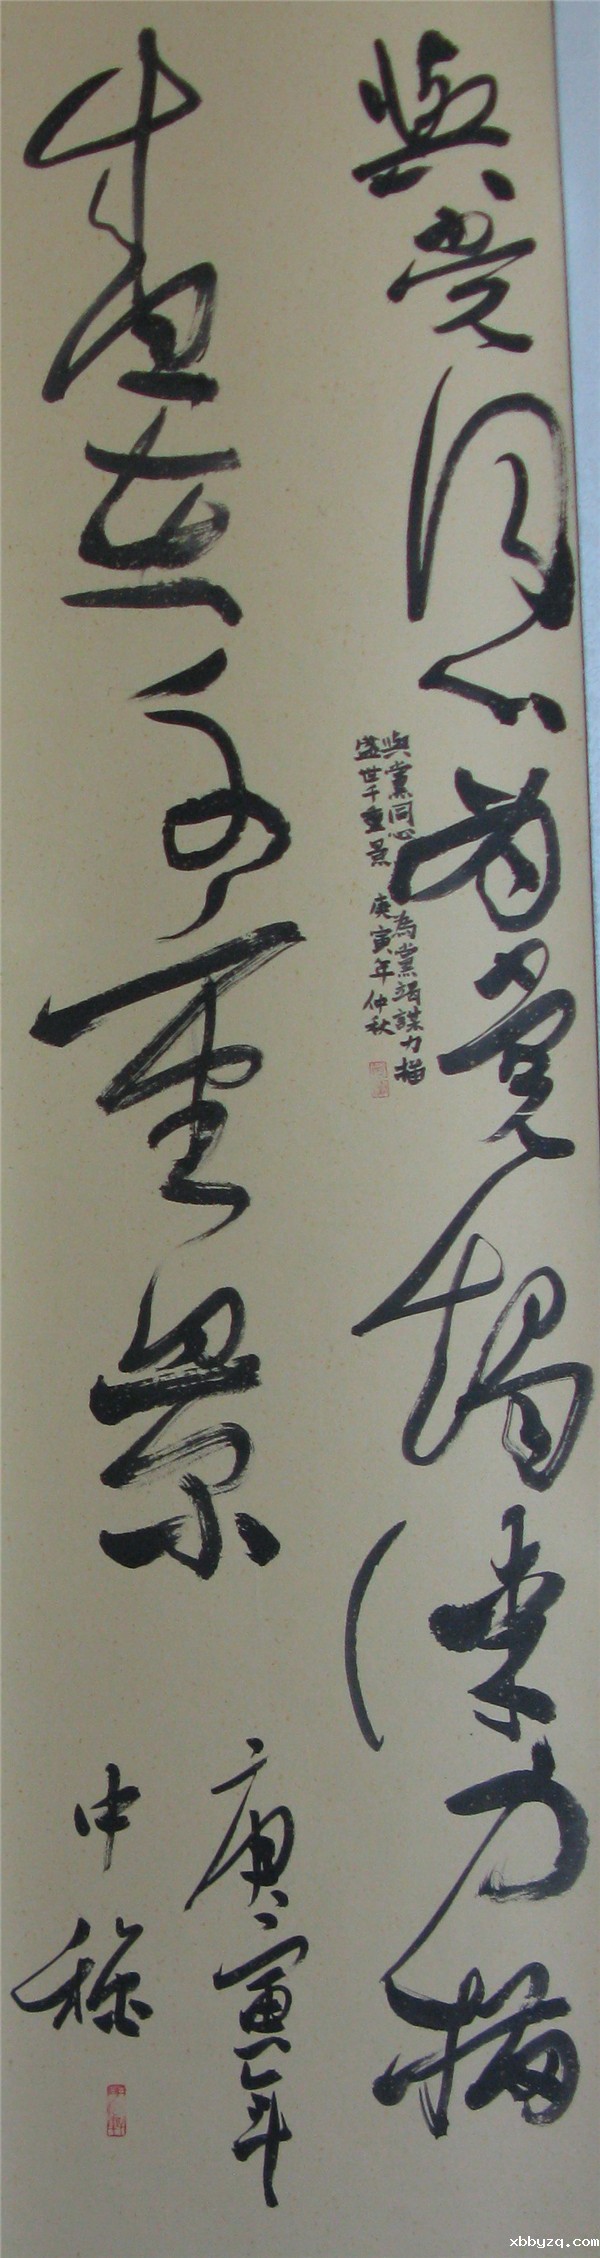 與党同心為党竭谋力描
盛世千重景
與黨同心 為黨竭謀力描
盛世千重景 庚寅年仲秋
庚寅年
申稳
xbbyzq.com